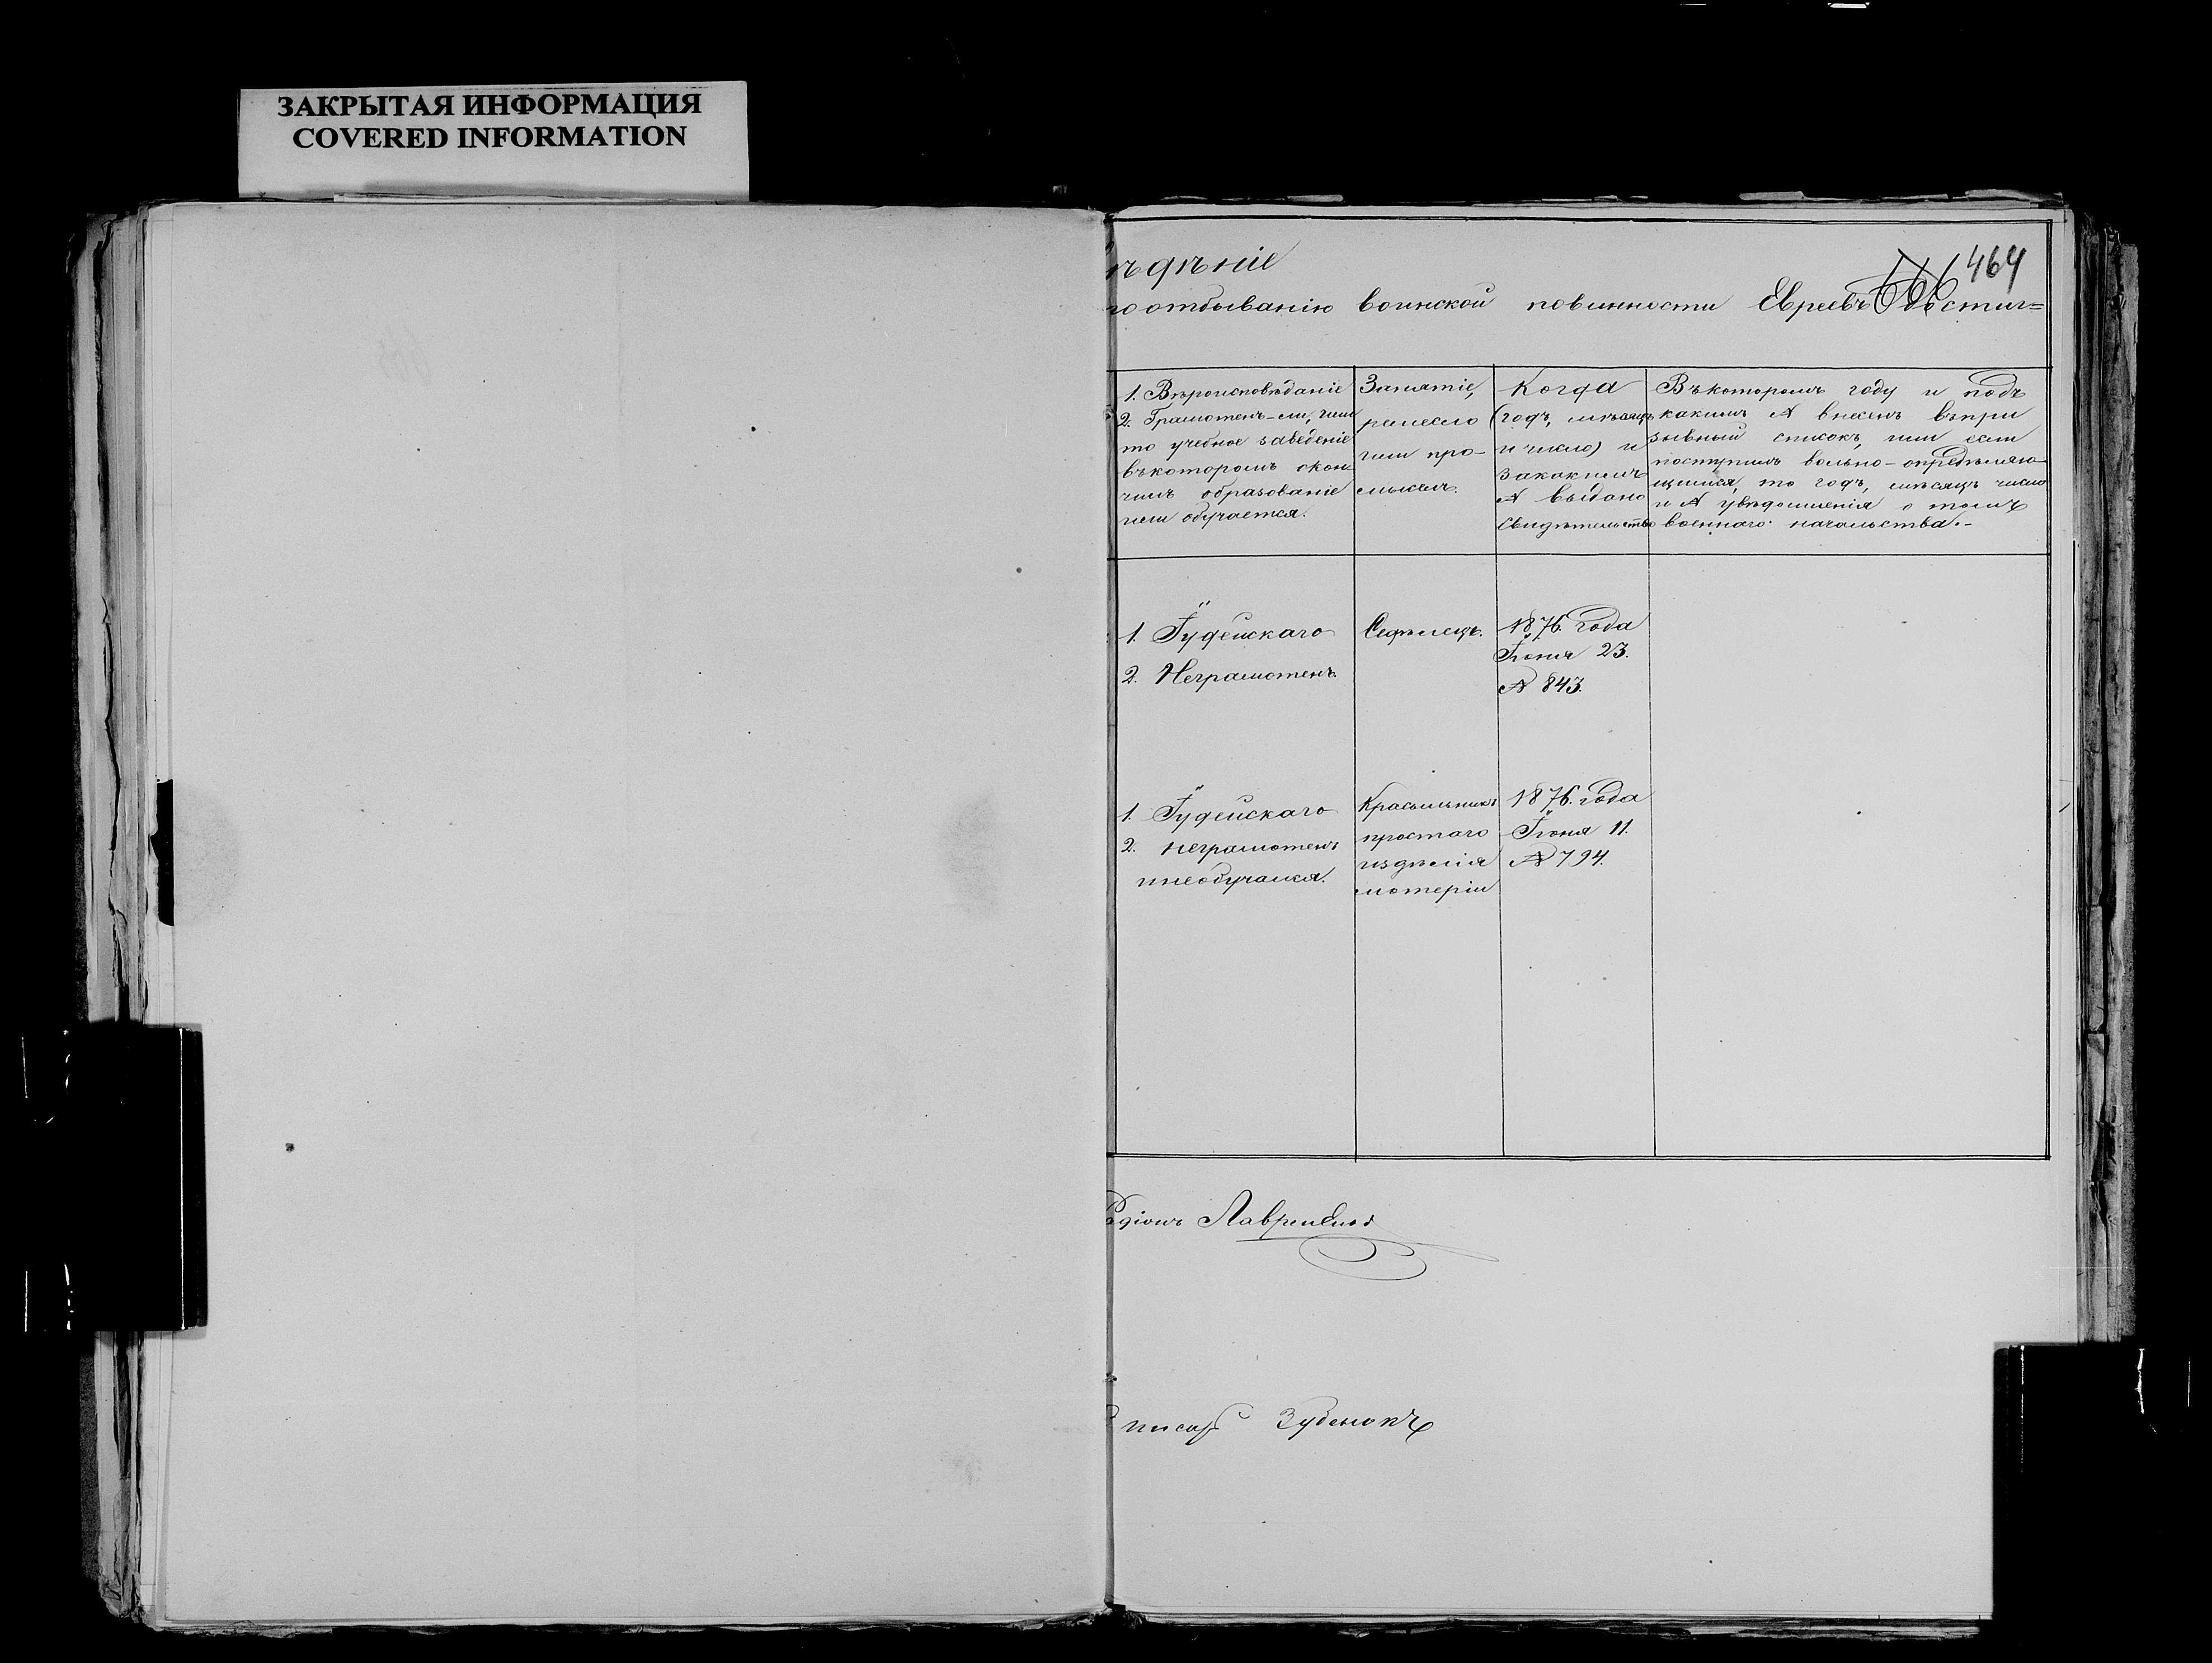 ЗАКРЫТАЯ ИНФОРМАЦИЯ
COVERED INFORMATION
464
ѣдѣніе
по отбыванію воинской повинности Евреевъ достиг=
1. Вѣроисповѣданіе
2. Грамотенъ-ли, или
то учебное заведеніе
въ которомъ окон-
чилъ образованіе
или обучается.
Занятіе,
ремесло
или про-
мыселъ.
Когда
(годъ, мѣсяцъ
и число) и
за какимъ
№ выдано
свидѣтельство
Въ которомъ году и подъ
какимъ № внесенъ въ при
зывный списокъ, или если
поступилъ вольно-опредѣляю-
щимся, то годъ, мѣсяцъ число
и № увѣдомленія о томъ
военнаго начальства.-
1. Іудейскаго
2. Неграмотенъ
1876. года
Іюня 23.
№ 843.
1. Іудейскаго
2. неграмотенъ
и необучался.
Красильникъ
простаго
издѣлія
мотеріи
1876. года
Іюня 11.
№ 794.
писарь Зубенокъ